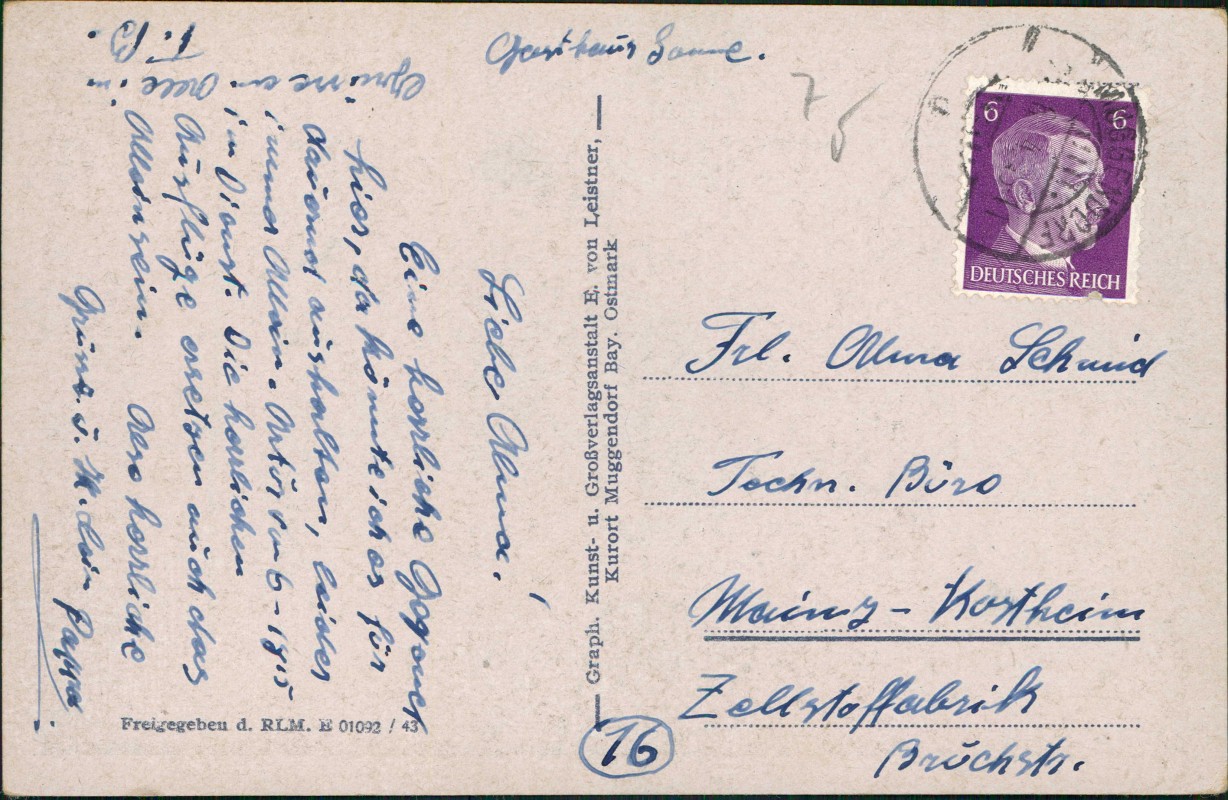 Gasthaus Sonne.
Liebe Alma!
Eine herrliche Gegend
hier, da könnte ich es für
dauernd aushalten, leider
immer Allein. Artur von 6-18 15
im Dienst. Die herrlichen
Ausflüge ersetzen auch das
Alleinsein. Also herrliche
Grüße u. K. Dein Pappa
Grüsse an Alle im
T. B.
Freigegeben d. RLM. E 01092 / 43
Graph. Kunst- u. Großverlagsanstalt E. von Leistner,
Kurort Muggendorf Bay. Ostmark
75
6 6
DEUTSCHES REICH
MUGGENDORF
Frl. Alma Schmid
Techn. Büro
Mainz-Kostheim
Zellstoffabrik
Brückstr.
16